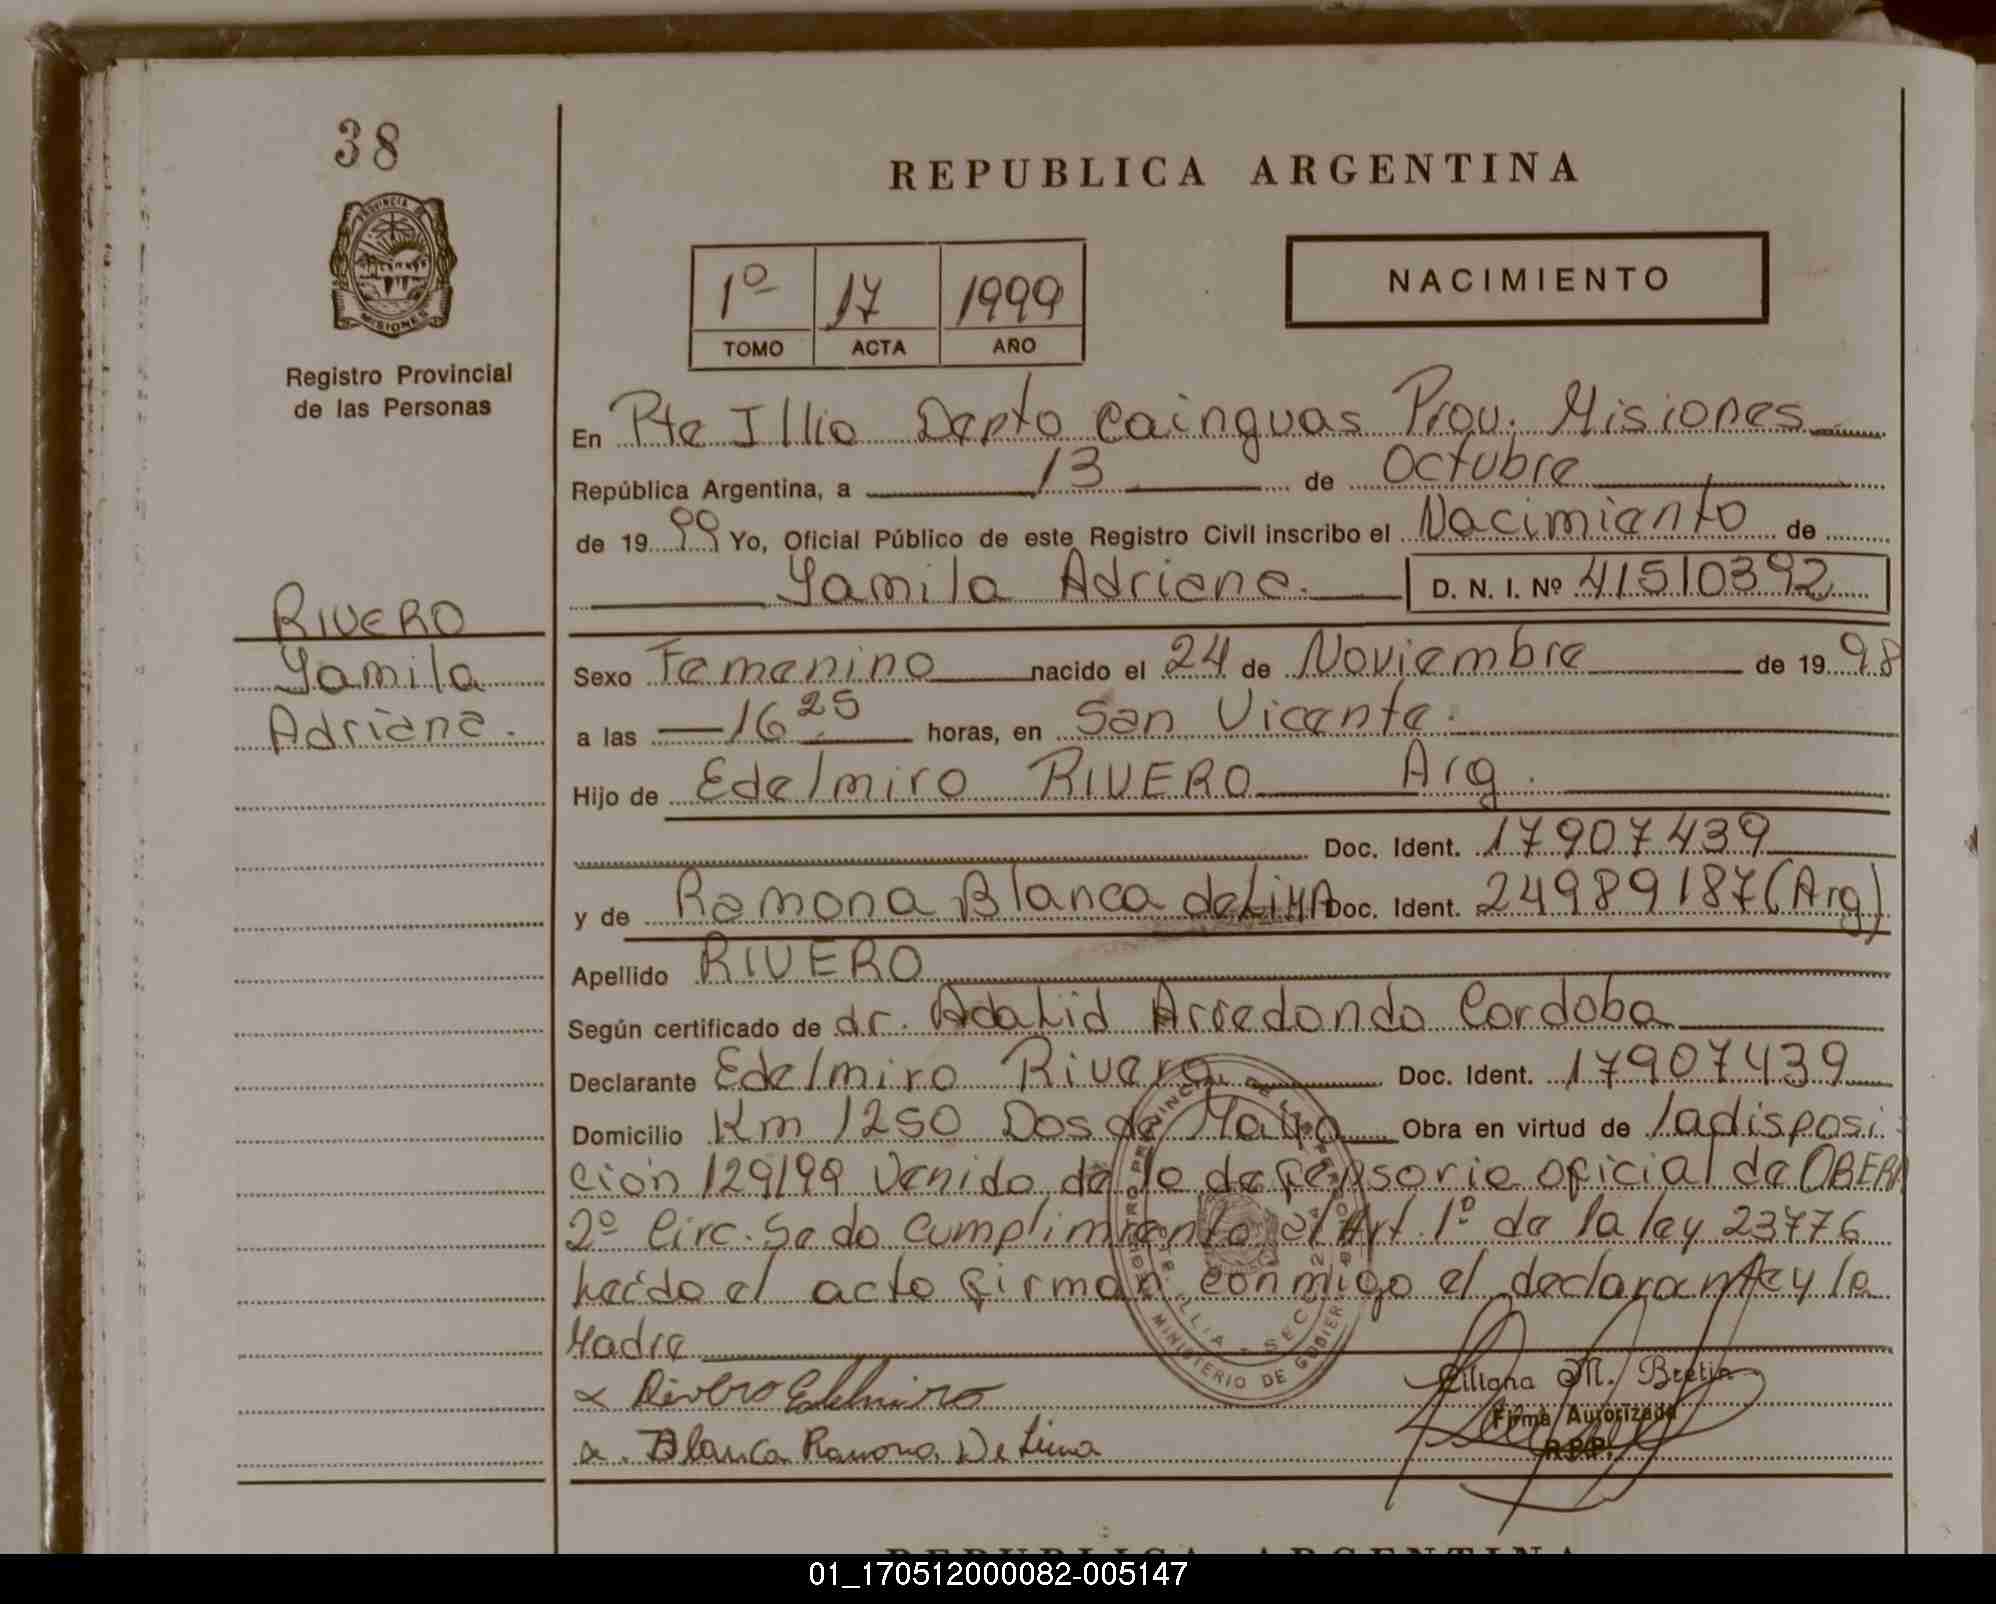 38
PROVINCIA DE
MISIONES
Registro Provincial
de las Personas
REPUBLICA ARGENTINA
1º 17 1999
TOMO ACTA AÑO
NACIMIENTO
En Pte Illia Depto Cainguas Prov. Misiones
República Argentina, a 13 de Octubre
de 1999 Yo, Oficial Público de este Registro Civil inscribo el Nacimiento de
Yamila Adriana. D. N. I. Nº 41510392
RIVERO
Yamila
Adriana.
Sexo Femenino nacido el 24 de Noviembre de 1998
a las 16 25 horas, en San Vicente.
Hijo de Edelmiro RIVERO Arg.
Doc. Ident. 17907439
y de Ramona Blanca de LiMA Doc. Ident. 24989187 (Arg)
Apellido RIVERO
Según certificado de dr. Adalid Arredondo Cordoba
Declarante Edelmiro Rivero Doc. Ident. 17907439
Domicilio Km 1250 Dos de Mayo Obra en virtud de la disposi
ción 129/99 venido de la defensoria oficial de OBERA
2º Circ. Se da cumplimiento al Art. 1º de la ley 23776
heído el acto firman conmigo el declarante y la
Madre
x Rivero Edelmiro
x. Blanca Ramona De Lima
Liliana M. Bretin
Firma Autorizada
R.P.P.
MINISTERIO DE GOBIER
REPUBLICA ARGENTINA
01_170512000082-005147